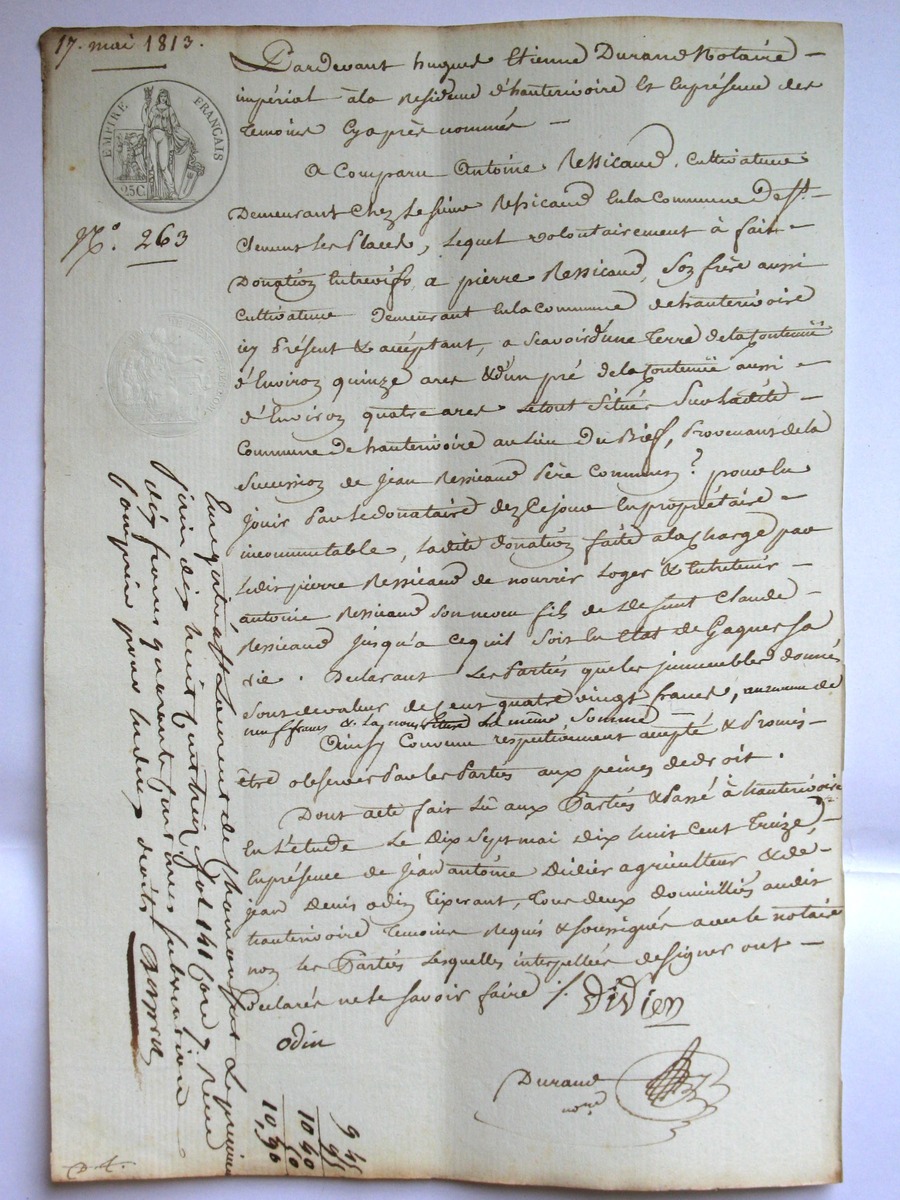 17. mai 1813.
EMPIRE FRANÇAIS
25C.
N.º 263
Pardevant hugues Etienne Durand Notaire
impérial à la Residence d'hauterivoire Et En présence des
Temoins Cy après nommés
A Comparu Antoine Ressicaud, Cultivateur
Demeurant Chez Ressicaud En la Commune De St.
Clement Les Places, Lequel volontairement à fait
Donation Entrevifs a pierre Ressicaud, Son frère aussi
Cultivateur Demeurant En la Commune de hauterivoire
icy Présent & acceptant, a Scavoir d'une Terre de la Contenue
d'Environ quinze ares & d'un pré de la Contenue aussi
d'Environ quatre ares Le tout Situés Sur Ladite
Commune De hauterivoire au Lieu Du Bief, Provenant de la
Succession de Jean Ressicaud Père Commun, pour En
Jouir Par Le donataire dez Ce jour En propriétaire
incommutable, Ladite donation faite a la Charge par
Ledit pierre Ressicaud de nourrir Loger & Entretenir
antoine Ressicaud Son neveu fils de defunt Claude
Ressicaud Jusqu'a Ce qu'il Soit En Etat de Gagner Sa
vie. Declarant Les Parties que les immeubles donnés
Sont de valeur de Cent quatre vingt francs, au revenu de
neuf francs & La nourriture La même Somme
Ainsy Convenu respectivement accepté & Promis
être observé Par les Parties aux peines de droit.
Dont acte fait Lû aux Parties & Passé à hauterivoire
En L'etude Le Dix Sept mai Dix huit Cent Treize
En présence de Jean antoine Didier agriculteur & de
Jean Denis odin Tisserant, Tous deux domiciliés audit
hauterivoire Temoins Requis & Soussignés avec le notaire
non les Parties Lesquelles interpellées de signer ont
Declarés ne le Savoir faire ./.
Didier
odin
Durand
nore
Enregistré à St Laurent de Chamousset Le premier
juin dix huit cent treize fol 141 Reçu
dix francs quarante cinq Subvention
Compris pour les deux droits
9 45
95
10 40
50
10,90